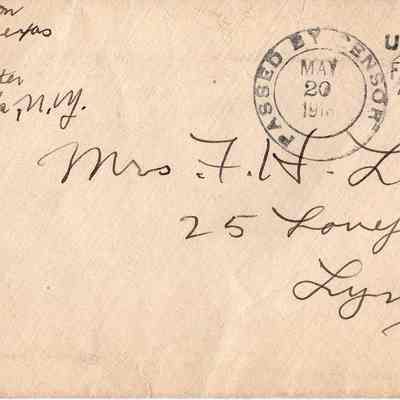 on
Texas
ter
a, N.Y.
PASSED BY CENSOR
MAY
20
191
U
Mrs. F. H. L
25 Lovej
Lyn